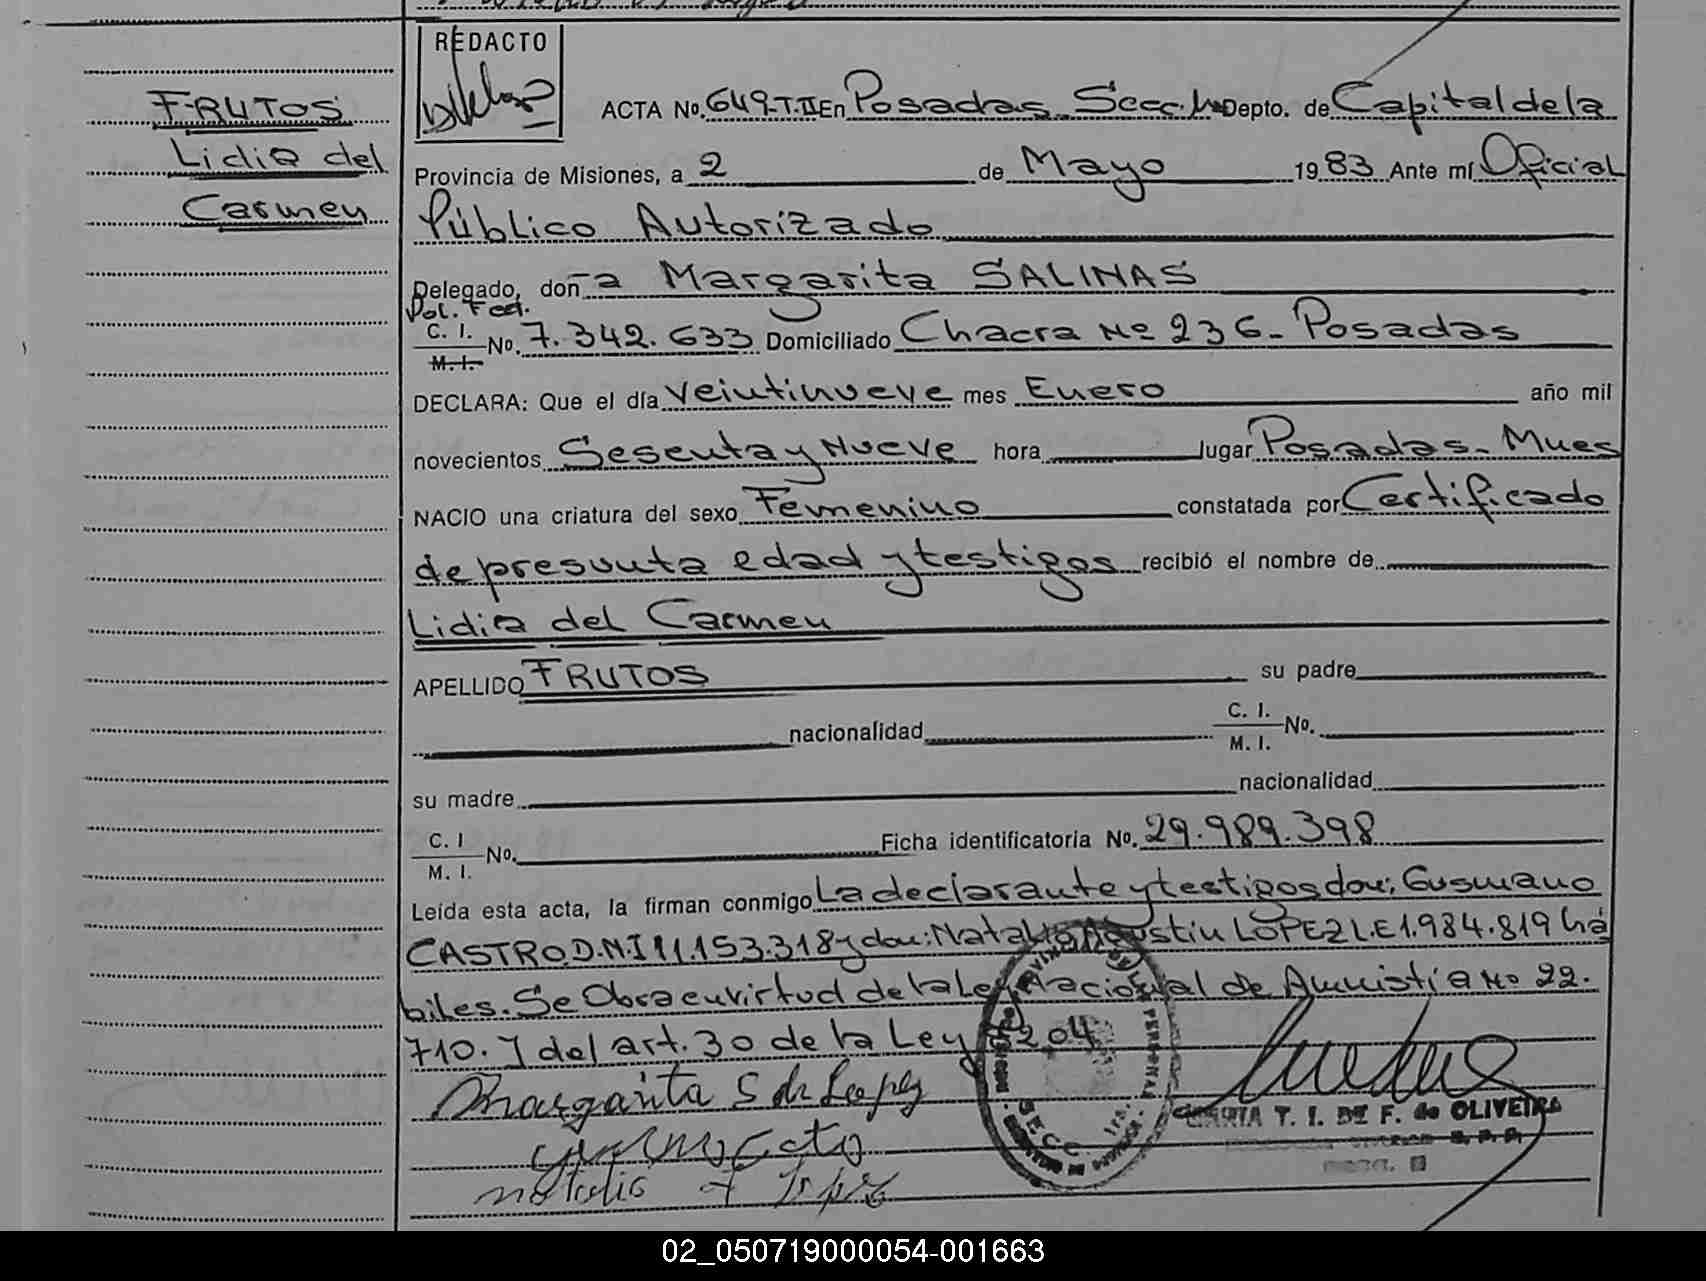 REDACTO
FRUTOS
Lidia del
Carmen
ACTA No. 649-T.II En Posadas. Secc. 1a Depto. de Capital de la
Provincia de Misiones, a 2 de Mayo 1983 Ante mí Oficial
Público Autorizado
Delegado, doña Margarita SALINAS
Pol. Fed.
C. I. M. I. No. 7.342.633 Domiciliado Chacra No 236- Posadas
DECLARA: Que el día veintinueve mes Enero año mil
novecientos Sesenta y Nueve hora lugar Posadas. Mnes
NACIO una criatura del sexo Femenino constatada por Certificado
de presunta edad y testigos recibió el nombre de
Lidia del Carmen
APELLIDO FRUTOS su padre
nacionalidad C. I. M. I. No.
su madre nacionalidad
C. I M. I. No. Ficha identificatoria No. 29.989.398
Leída esta acta, la firman conmigo La declarante y testigos don: Gusmano
CASTRO D.N.I 11.153.318 y don: Natalio Agustin LOPEZ L.E 1.984.819 há
biles. Se Obra en virtud de la Ley Nacional de Amnistía No 22.
710. y del art. 30 de la Ley 204
Margarita S de Lopez
Natalio A Lopez
T. I. DE F. de OLIVEIRA
02_050719000054-001663